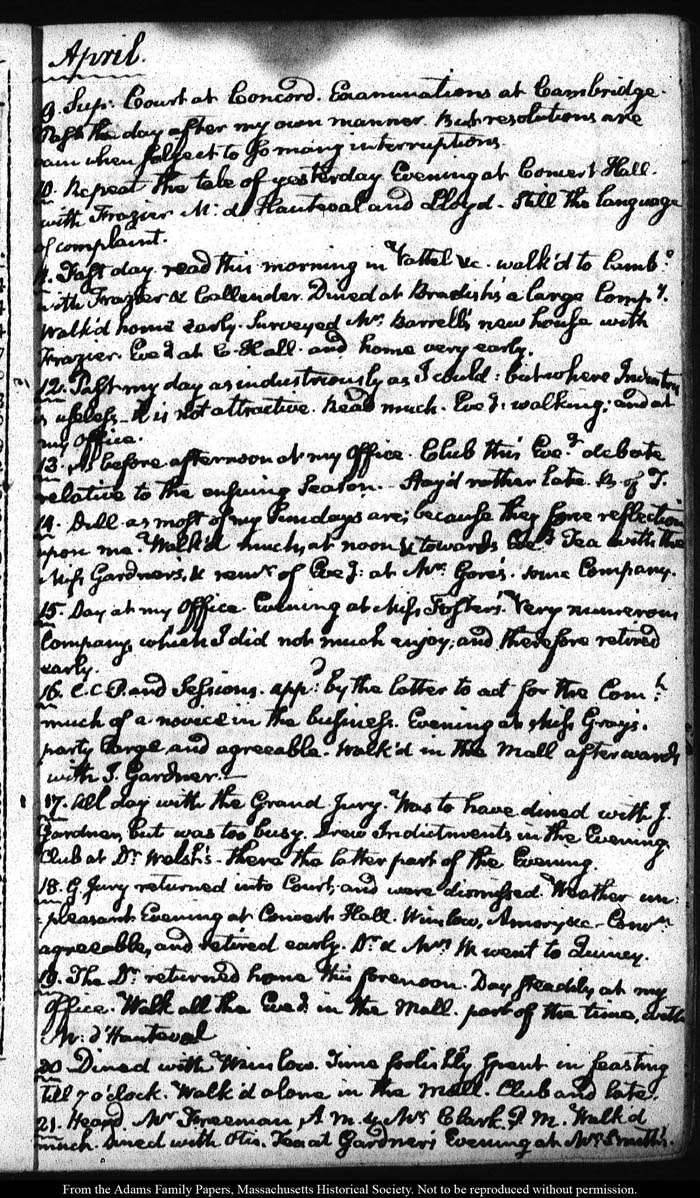 April.
9. Sup: Court at Concord. Examinations at Cambridge.
Past the day after my own manner. But resolutions are
vain when subject to so many interruptions.
10. Repeat the tale of yesterday Evening at Concert Hall.
with Frazier M: d'Hauteval and Lloyd. Still the language
of complaint.
11. Fast day. read this morning in Vattel &c. walk'd to Camb:e
with Frazier & Callender. Dined at Bradish's a large Compy.
Walk'd home early. Surveyed Mr. Barrell's new house with
Frazier. Eveg at C-Hall. and home very early.
12. Past my day as industriously as I could: but where Industry
is useless it is not attractive. Read much. Eveg: walking; and at
my Office.
13. As before. afternoon at my Office. Club this Eveg. debate
relative to the ensuing Season. Stay'd rather late. B of T.
14. Dull as most of my Sundays are; because they force reflection
upon me. Walk'd much, at noon & towards Eveg. Tea with the
Miss Gardner's, & remr. of Eveg: at Mr. Gore's. some Company.
15. Day at my Office. Evening at Miss Foster's. Very numerous
Company, which I did not much enjoy; and therefore retired
early.
16. C.C.P. and Sessions. appd: by the latter to act for the Comth:
much of a novice in the business. Evening at Miss Gray's.
party large and agreeable. Walk'd in the Mall afterwards
with J. Gardner.
17. All day with the Grand Jury. Was to have dined with J.
Gardner, but was too busy. Drew Indictments in the Evening.
Club at Dr Welsh's - there the latter part of the Evening.
18. G. Jury returned into Court, and were dismissed. Weather un:
:pleasant Evening at Concert Hall. Winslow, Amory &c. Convn
agreeable, and retired early. Dr. & Mrs W went to Quincy.
19. The Dr. returned home this forenoon. Day steadily at my
Office. Walk all the Eveg. in the Mall. part of the time, with
M: d'Hauteval
20. Dined with Winslow. Time foolishly spent in feasting
till 7 o'clock. Walk'd alone in the Mall. Club and late.
21. Heard Mr Freeman, A.M. & Mr Clark. P.M. Walk'd
much. Dined with Otis. Tea at Gardner's Evening at Mrs Smith's.
From the Adams Family Papers, Massachusetts Historical Society. Not to be reproduced without permission.